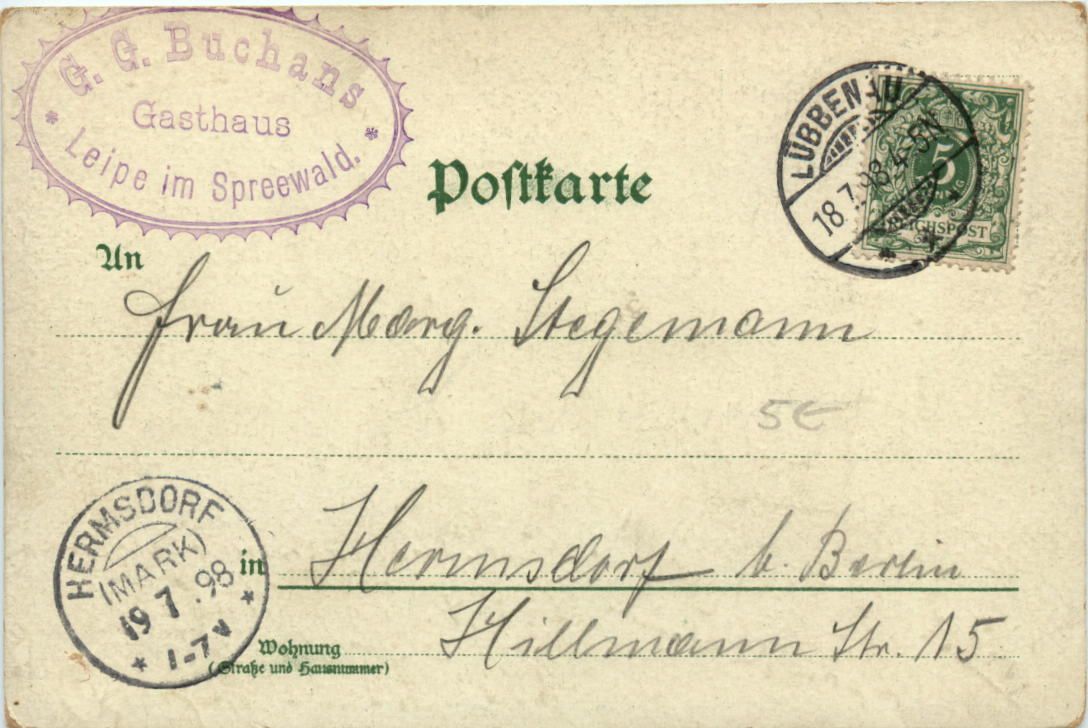 G. G. Buchans
Gasthaus
Leipe im Spreewald.
Postkarte
LÜBBENAU
18.7.98.4-5N
5
PFENNIG
REICHSPOST
An
Frau Marg. Stegemann
5€
HERMSDORF
(MARK)
19 7 .98
1-7V
in Hermsdorf b. Berlin
Wohnung
(Straße und Hausnummer)
Hillmann Str. 15